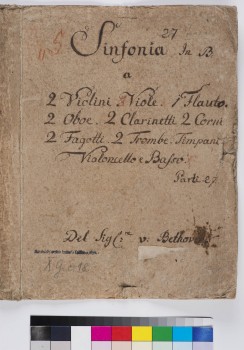 27
Sinfonia In B
a
2 Violini 2 Viole. 1 Flauto.
2 Oboe. 2 Clarinetti 2 Corni
2 Fagotti. 2 Trombe. Timpani
Violoncello e Basso.
Parti 27
Del Sig v. Bethov